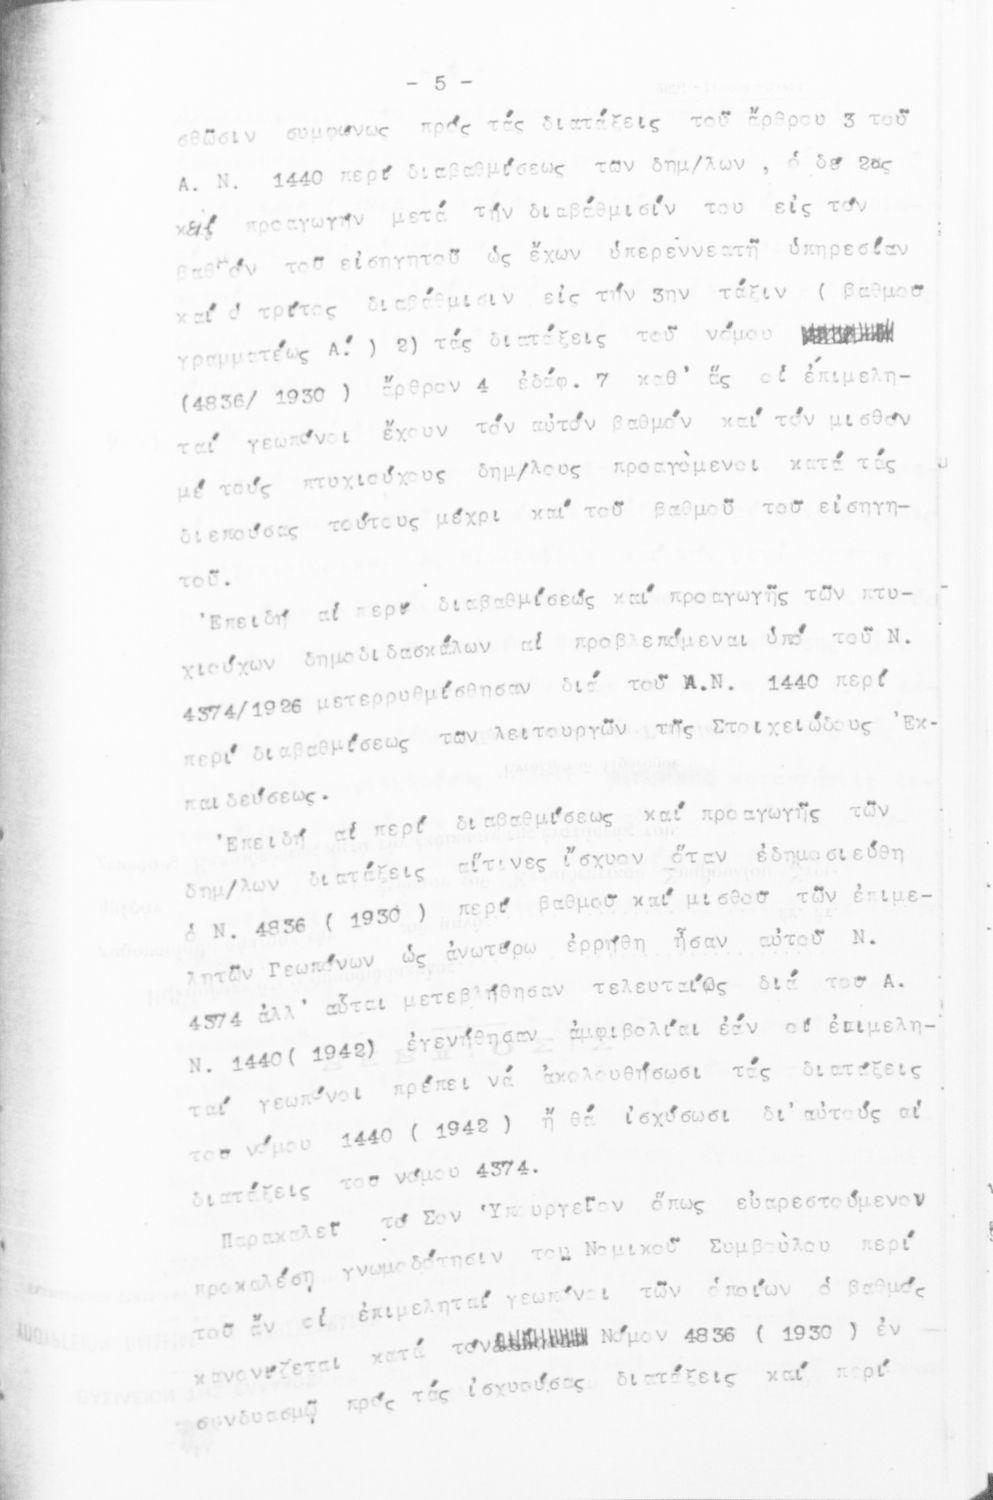 - 5 -
σθῶσιν συμφώνως πρός τάς διατάξεις τοῦ ἄρθρου 3 τοῦ
Α. Ν. 1440 περί διαβαθμίσεως των δημ/λων , ὁ δέ 2ος
καί προαγωγήν μετά τήν διαβάθμισίν του εἰς τόν
βαθμόν τοῦ εἰσηγητοῦ ὡς ἔχων ὑπερεννεατῆ ὑπηρεσίαν
καί ὁ τρίτος διαβάθμισιν εἰς τήν 3ην τάξιν ( βαθμοῦ
γραμματέως Α΄. ) 2) τάς διατάξεις τοῦ νόμου
(4836/ 1930 ) ἄρθρον 4 ἐδάφ. 7 καθ' ἅς οἱ ἐπιμελη-
ταί γεωπόνοι ἔχουν τόν αὐτόν βαθμόν καί τόν μισθόν
μέ τούς πτυχιούχους δημ/λους προαγόμενοι κατά τάς
διεπούσας τούτους μέχρι καί τοῦ βαθμοῦ τοῦ εἰσηγη-
τοῦ.
Ἐπειδή αἱ περί διαβαθμίσεώς καί προαγωγῆς τῶν πτυ-
χιούχων δημοδιδασκάλων αἱ προβλεπόμεναι ὑπό τοῦ Ν.
4374/1926 μετερρυθμίσθησαν διά τοῦ Α.Ν. 1440 περί
περί διαβαθμίσεως τῶν λειτουργῶν τῆς Στοιχειώδους Ἐκ-
παιδεύσεως.
Ἐπειδή αἱ περί διαβαθμίσεως καί προαγωγῆς τῶν
δημ/λων διατάξεις αἵτινες ἴσχυον ὅταν ἐδημοσιεύθη
ὁ Ν. 4836 ( 1930 ) περί βαθμοῦ καί μισθοῦ τῶν ἐπιμε-
λητῶν Γεωπόνων ὡς ἀνωτέρω ἐρρήθη ἦσαν αὐτοῦ Ν.
4374 ἀλλ' αὗται μετεβλήθησαν τελευταίως διά τοῦ Α.
Ν. 1440( 1942) ἐγενήθησαν ἀμφιβολίαι ἐάν οἱ ἐπιμελη-
ταί γεωπόνοι πρέπει νά ἀκολουθήσωσι τάς διατάξεις
τοῦ νόμου 1440 ( 1942 ) ἤ θά ἰσχύσωσι δι'αὐτούς αἱ
διατάξεις τοῦ νόμου 4374.
Παρακαλεῖ τό Σον Ὑπουργεῖον ὅπως εὐαρεστούμενον
προκαλέση γνωμοδότησιν του Νομικοῦ Συμβούλου περί
τοῦ ἄν οἱ ἐπιμεληταί γεωπόνοι τῶν ὁποίων ὁ βαθμός
κανονίζεται κατά τόν Νόμον 4836 ( 1930 ) ἐν
συνδυασμῷ πρός τάς ἰσχυούσας διατάξεις καί περί